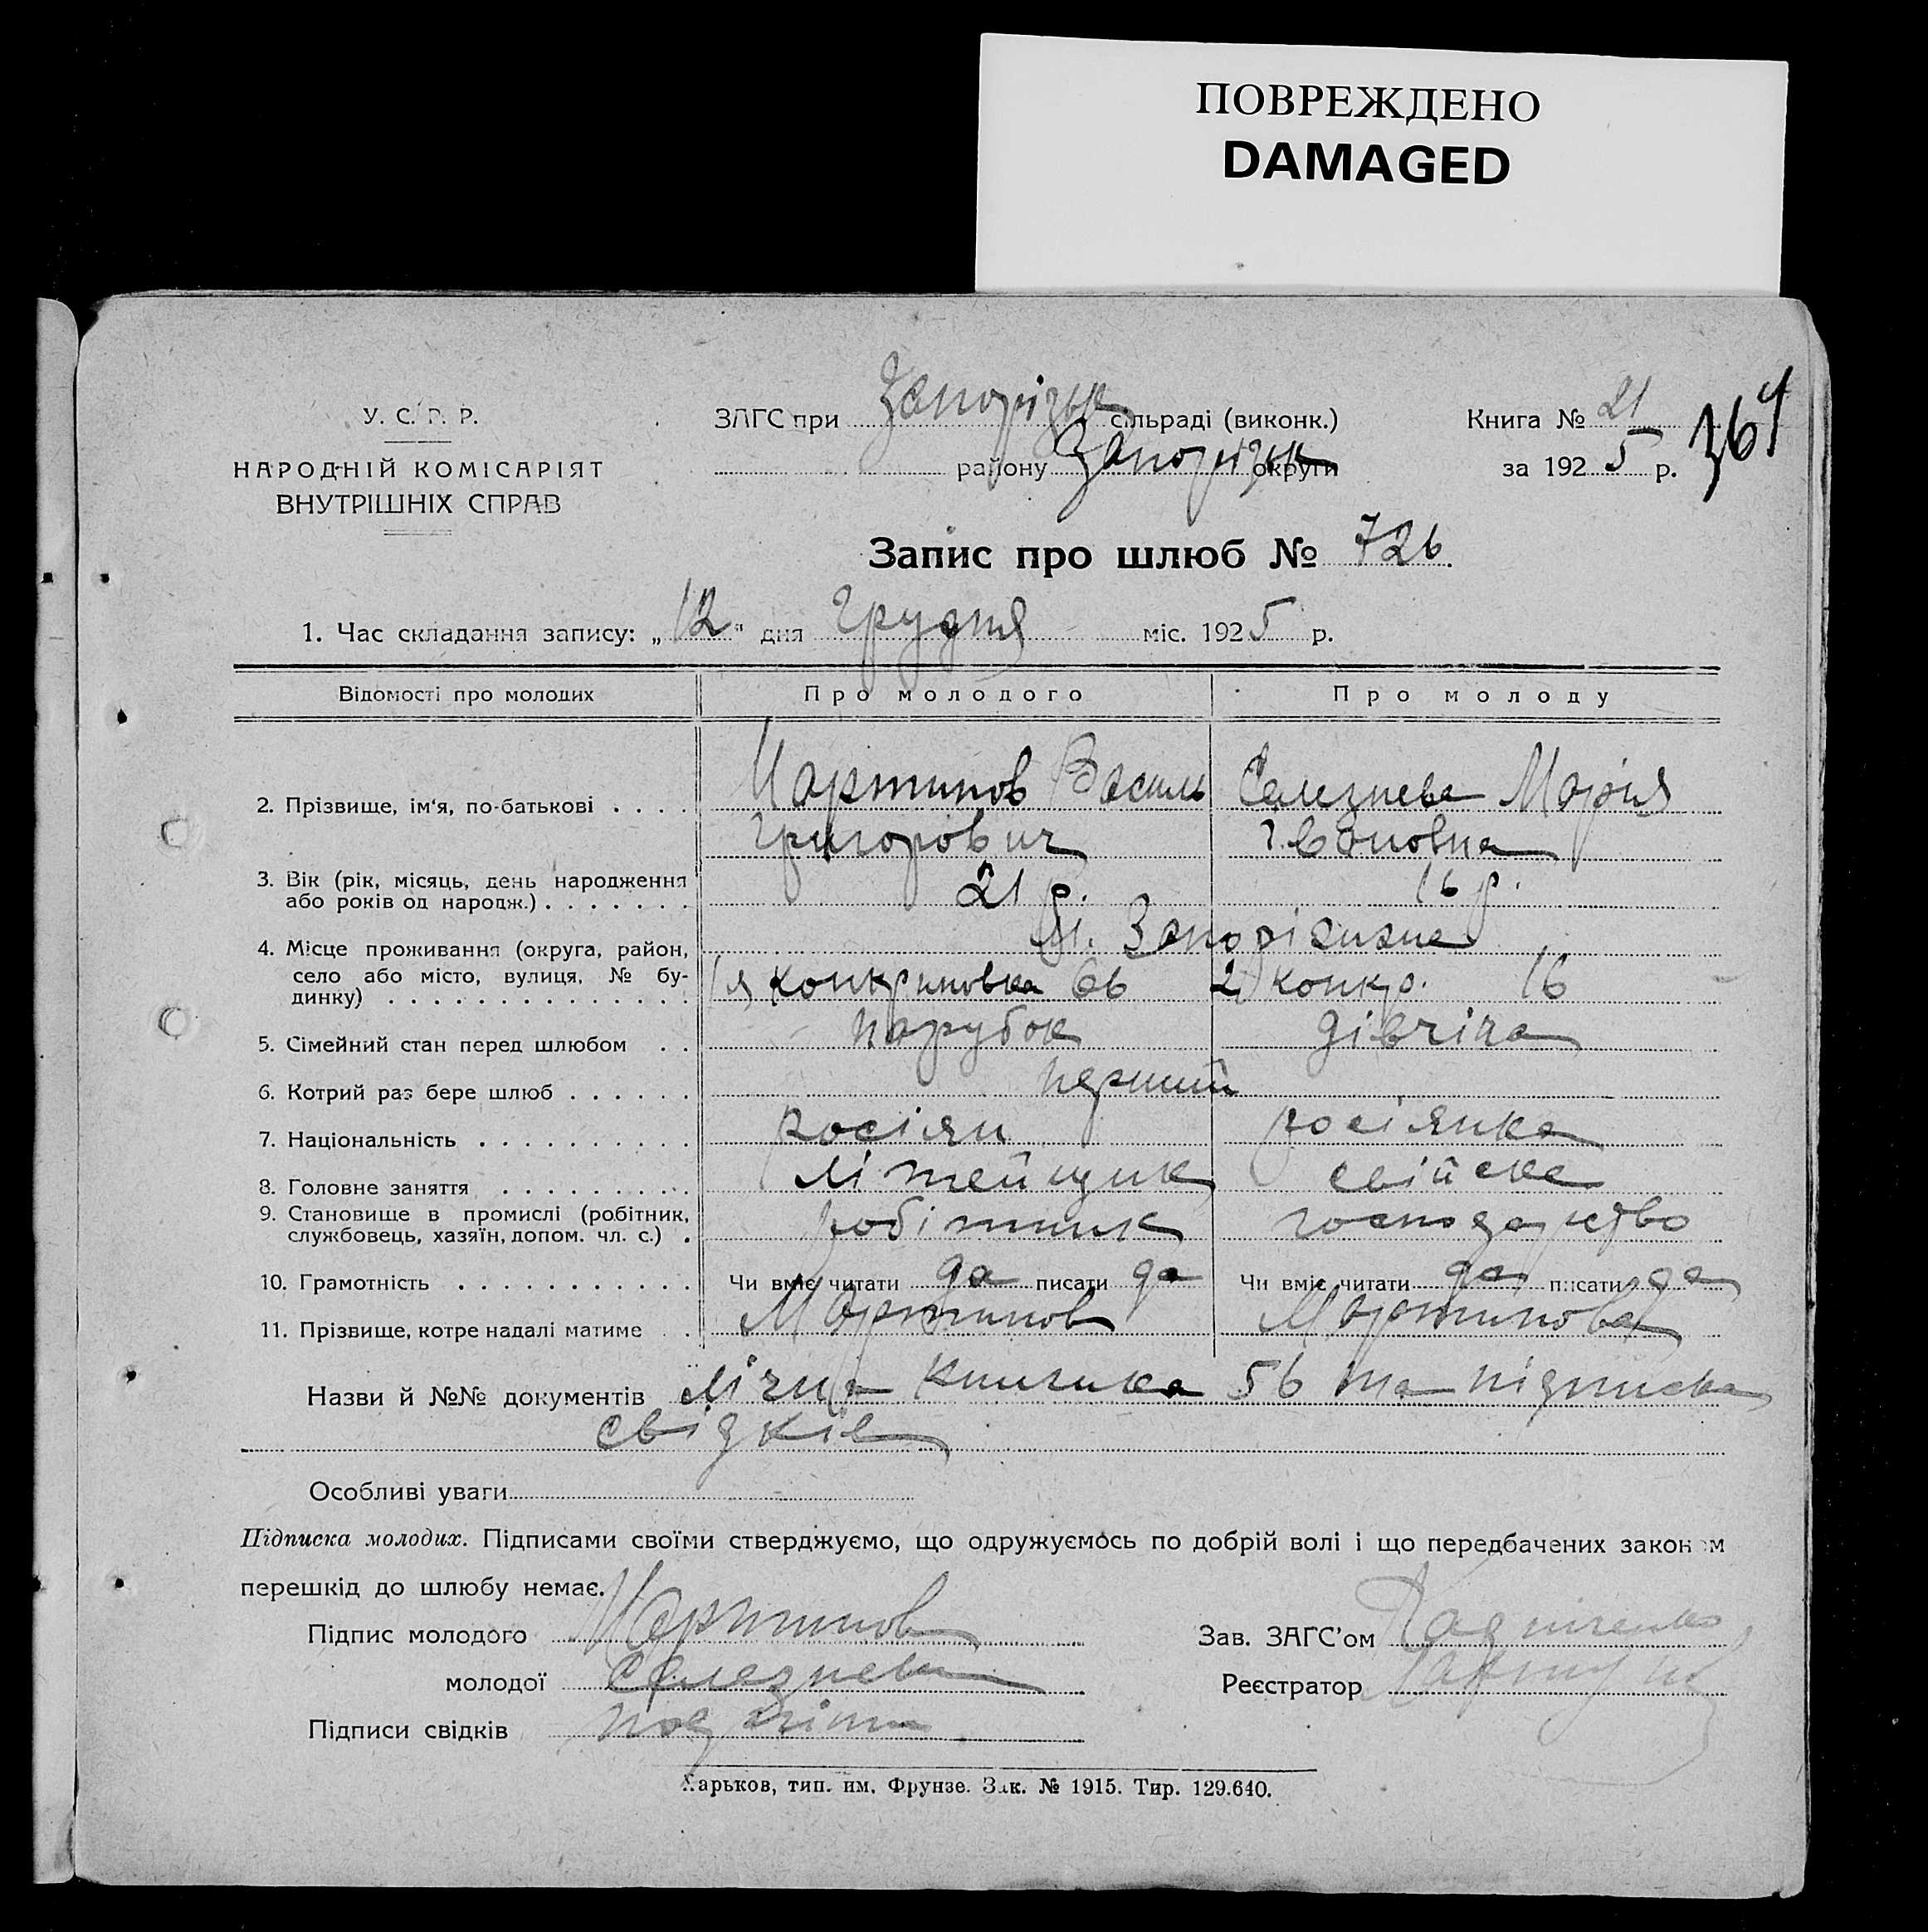 ПОВРЕЖДЕНО
DAMAGED
У. С. Р. Р.
НАРОДНІЙ КОМІСАРІЯТ
ВНУТРІШНІХ СПРАВ
ЗАГС при Запорізьк сільраді (виконк.)
району Запорізьк округи
Книга № 21
за 1925 р.
364
Запис про шлюб № 726.
1. Час складання запису: „12" дня Грудня міс. 1925 р.
Відомості про молодих Про молодого Про молоду
2. Прізвище, ім'я, по-батькові . . . . Мартинов Василь Селезнева Марія
Григорович Івановна
3. Вік (рік, місяць, день народження
або років од народж.) . . . . . . . 21 р. 16 р.
4. Місце проживання (округа, район, м. Запоріжжя
село або місто, вулиця, № бу-
динку) . . . . . . . . . . . . . . 1я Конкриновка 66 2 Конкр. 16
5. Сімейний стан перед шлюбом . . парубок дівчина
6. Котрий раз бере шлюб . . . . . . перший
7. Національність . . . . . . . . . . росіян росіянка
8. Головне заняття . . . . . . . . . літейщик свійске
9. Становище в промислі (робітник,
службовець, хазяїн, допом. чл. с.) . робітник господарство
10. Грамотність . . . . . . . . . . . Чи вміє читати да писати да Чи вміє читати да писати да
11. Прізвище, котре надалі матиме . . Мартинов Мартинова
Назви й №№ документів лічна книжка 56 та підписка
свідків
Особливі уваги
Підписка молодих. Підписами своїми стверджуємо, що одружуємось по добрій волі і що передбачених законом
перешкід до шлюбу немає.
Підпис молодого Мартинов
Зав. ЗАГС'ом
молодої Селезнева
Реєстратор
Підписи свідків
Харьков, тип. им. Фрунзе. Зак. № 1915. Тир. 129.640.